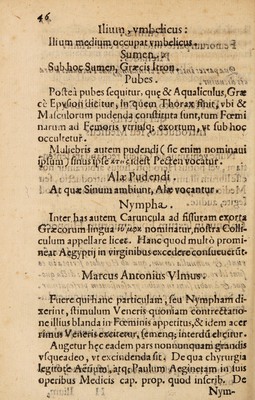 46
Ilium, vmbelicus:
Ilium medium occupat vmbelicus.
Sumen.
Sub hoc Sumen, Græcis Itron.
Pubes.
Posteà pubes sequitur, quę & Aqualiculus, Græ
cè dicitur, in quem Thorax sinit, vbi &
Masculorum pudenda constituta sunt, tum Fœmi
narum ad Femoris vtriusq; exortum, vt sub hoc
occultetur.
Muliebris autem pudendi (sic enim nominaui
ipsum) sinus ipse idest Pecten vocatur.
Alæ Pudendi.
At quæ Sinum ambiunt, Alæ vocantur.
Nympha.
Inter has autem Caruncula ad fissuram exorta
Græcorum lingua nominatur, nostra Colli-
culum appellare licet. Hanc quod multò promi-
neat Aegyptij in virginibus excedere consueuerūt.
Marcus Antonius Vlmus.
Fuere qui hanc particulam, seu Nympham di-
xerint, stimulum Veneris quoniam contrectatio-
ne illius blanda in Fœminis appetitus, & idem acer
rimus Veneris exciteter, semenq; interdū eliciatur.
Augetur hęc eadem pars nonnunquam grandis
vsqueadeo, vt excindenda sit. De qua chyrurgia
legitote Aetium, atq; Paulum Aeginetam in suis
operibus Medicis cap. prop. quod inscrib. De
Nym-